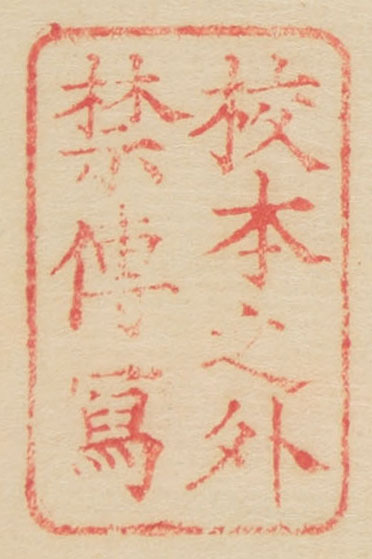 校本之外
禁傳寫